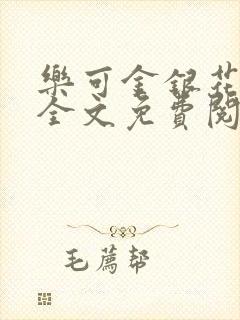 樂可金銀花
全文免費閱
毛薦幫